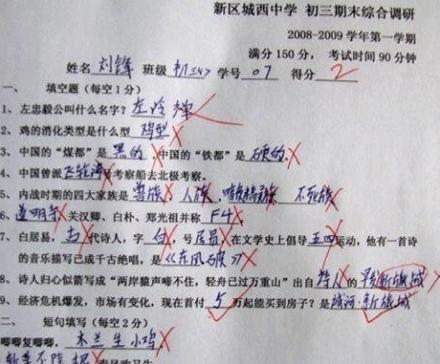 新区城西中学 初三期末综合调研
2008-2009 学年第一学期
满分 150 分, 考试时间 90 分钟
姓名 刘锋 班级 初三<4> 学号 07 得分 2
一、 填空题(每空 1 分)
1、左忠毅公叫什么名字? 左冷禅
2、鸡的消化类型是什么型 鸡型
3、中国的“煤都”是 黑的 ,中国的“铁都”是 硬的 。
4、中国曾派 飞轮海 号考察船去北极考察。
5、内战时期的四大家族是 兽族 、 人族 、 暗夜精灵族 、 不死族
6、 道明寺 关汉卿、白朴、郑光祖并称 F4 。
7、白居易, 古 代诗人,字 白 ,号 居易 ,在文学史上倡导 五四 运动,他有一首诗
的音乐描写已成千古绝唱,是 《东风破》
8、诗人归心似箭写成“两岸猿声啼不住,轻舟已过万重山”出自 诗人 的
9、经济危机爆发,市场有变化,现在首付 5 万起能买到房子?是 城河·新旗城
二、 短句填写(每空 2 分)
唧唧复唧唧, 木兰生小鸡